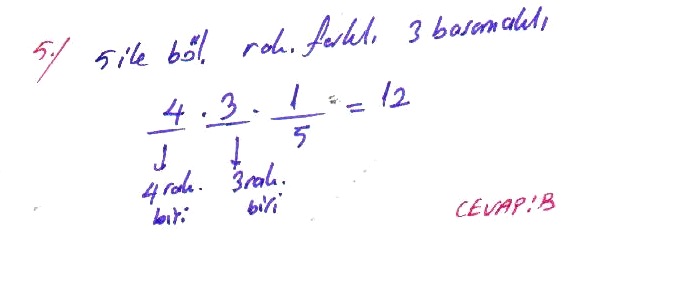 5-/ 5 ile böl. rak. farklı 3 basamaklı
4 . 3 . 1 = = 12
5
↓ ↓
4 rak. 3 rak.
biri biri
CEVAP: B